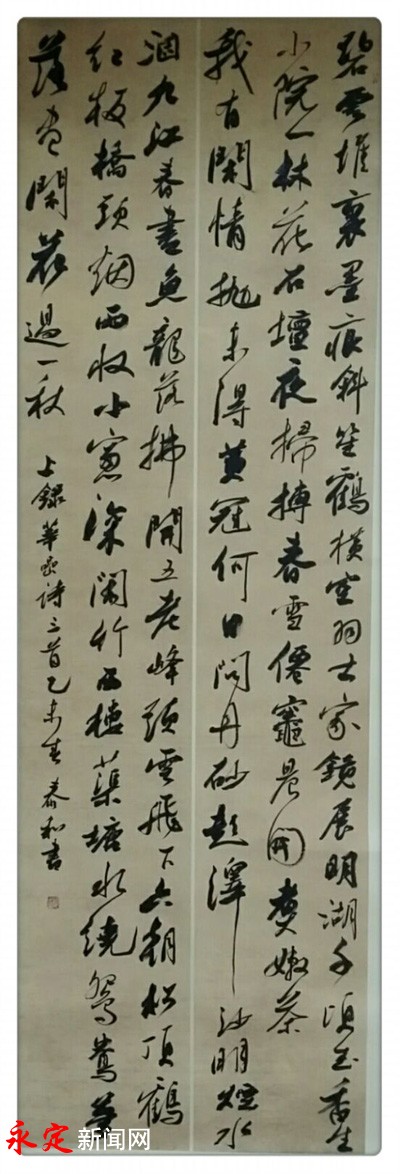 碧雲堆裏墨痕斜笙鶴橫空羽士家鏡展明湖千頃玉香生
小院一林花石壇夜掃摶春雪僊竈晨開煑嫩茶
我有閑情抛未得黄冠何日問丹砂彭澤沙明煙水
涸九江春盡魚龍落拂開五老峰頭雲飛下六朝松頂鶴
紅板橋頭烟雨收小窻深閉竹西樓蕖塘水繞鴛鴦夢
落盡閑花過一秋 上錄華嵒詩三首乙未春泰和書
永定新闻网